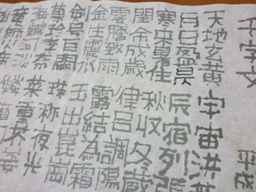 千字文
天地玄黄 宇宙洪
日月盈昃 辰宿列張
寒来暑往 秋収冬蔵
閏余成歳 律呂調陽
雲騰致雨 露結為霜
金生麗水 玉出崑岡
剣号巨闕 珠称夜光
菓珍李奈 菜重芥